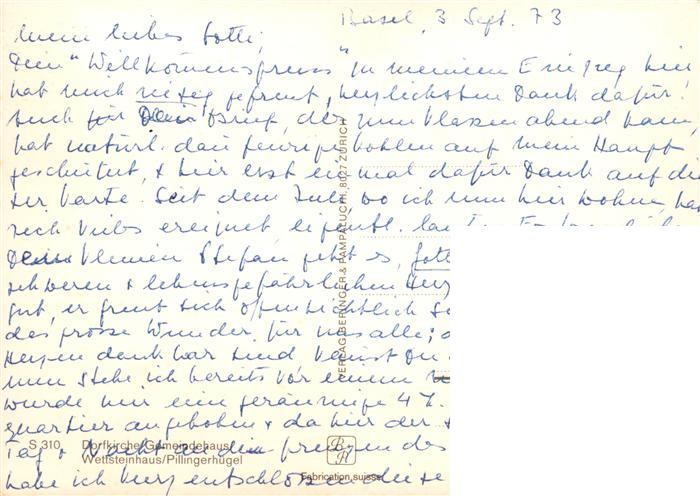 Basel, 3 Sept. 73
Mein liebes Lotti,
Dein "Willkommensgruss" zu meinem Einzug hier
hat mich riesig gefreut, herzlichsten Dank dafür!
Auch für Dein Brief, der zum Klassenabend kam,
hat natürl. dann feurige Kohlen auf mein Haupt
geschüttet, & hier erst einmal dafür Dank auf die-
ser Karte. Seit dem Juli, wo ich nun hier wohne, ha
sich vieles ereignet
Dem kleinen Stefan geht es, Gott
schweren & lebensgefährlichen Herz
gut, er freut sich offensichtlich se
das grosse Wunder für uns alle;
Herzen dankbar sind kannst Du
nun stehe ich bereits vor einem
wurde mir eine geräumige 4 Z.
quartier angeboten & da hier der
Tag & Nacht an den Grenzen des
habe ich kurz entschlossen diese
S 310 Dorfkirche/Gemeindehaus
Wettsteinhaus/Pillingerhügel
VERLAG BERINGER & PAMPALUCHI, 8027 ZÜRICH
Fabrication suisse